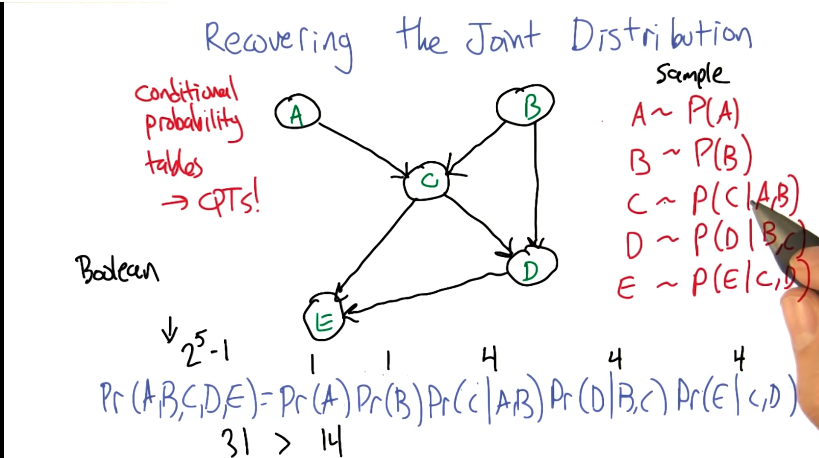 Recovering the Joint Distribution
conditional
probability
tables
→ CPTs!
A
B
C
D
E
Sample
A ~ P(A)
B ~ P(B)
C ~ P(C|A,B)
D ~ P(D|B,C)
E ~ P(E|C,D)
Boolean
↓ 2⁵-1
1 1 4 4 4
Pr(A,B,C,D,E)=Pr(A)Pr(B)Pr(C|A,B)Pr(D|B,C)Pr(E|C,D)
31 > 14